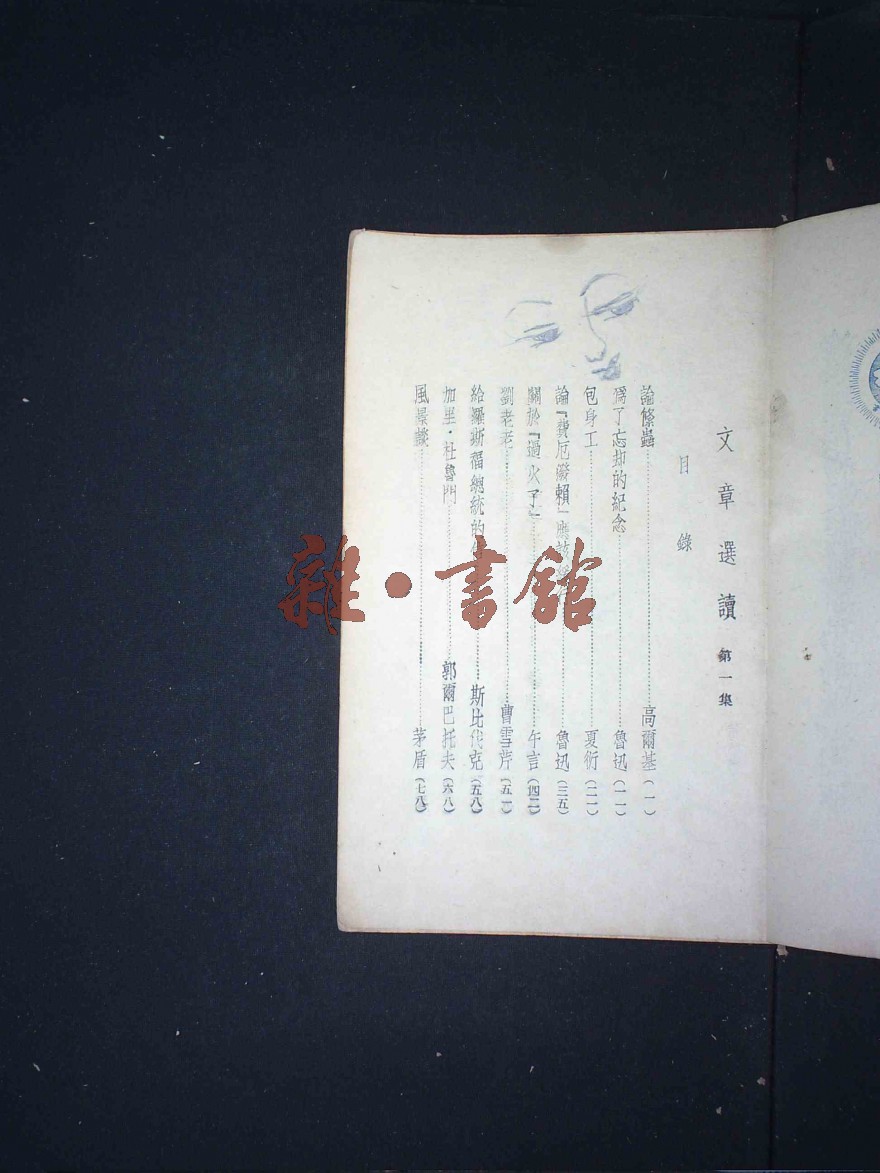 文章選讀 第一集
目錄
論條蟲……高爾基(一)
爲了忘却的紀念……魯迅(一一)
包身工……夏衍(二一)
論『費厄潑賴』應該……魯迅(三五)
關於『過火了』……午言(四二)
劉老老……曹雪芹(五一)
給羅斯福總統的……斯比伐克(五八)
加里·杜魯門……郭爾巴托夫(六八)
風景談……茅盾(七八)
雜·書館